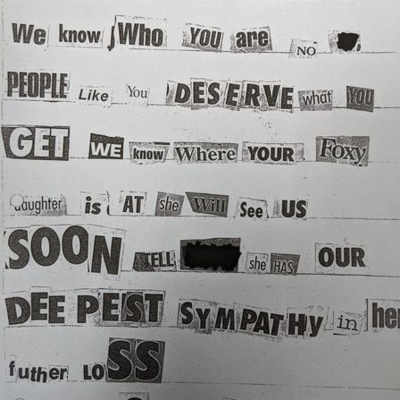 We know Who YOU are NO
PEOPLE Like You DESERVE what YOU
GET WE know Where YOUR Foxy
daughter is AT she Will See US
SOON TELL she HAS OUR
DEEPEST SYMPATHY in her
futher LOSS